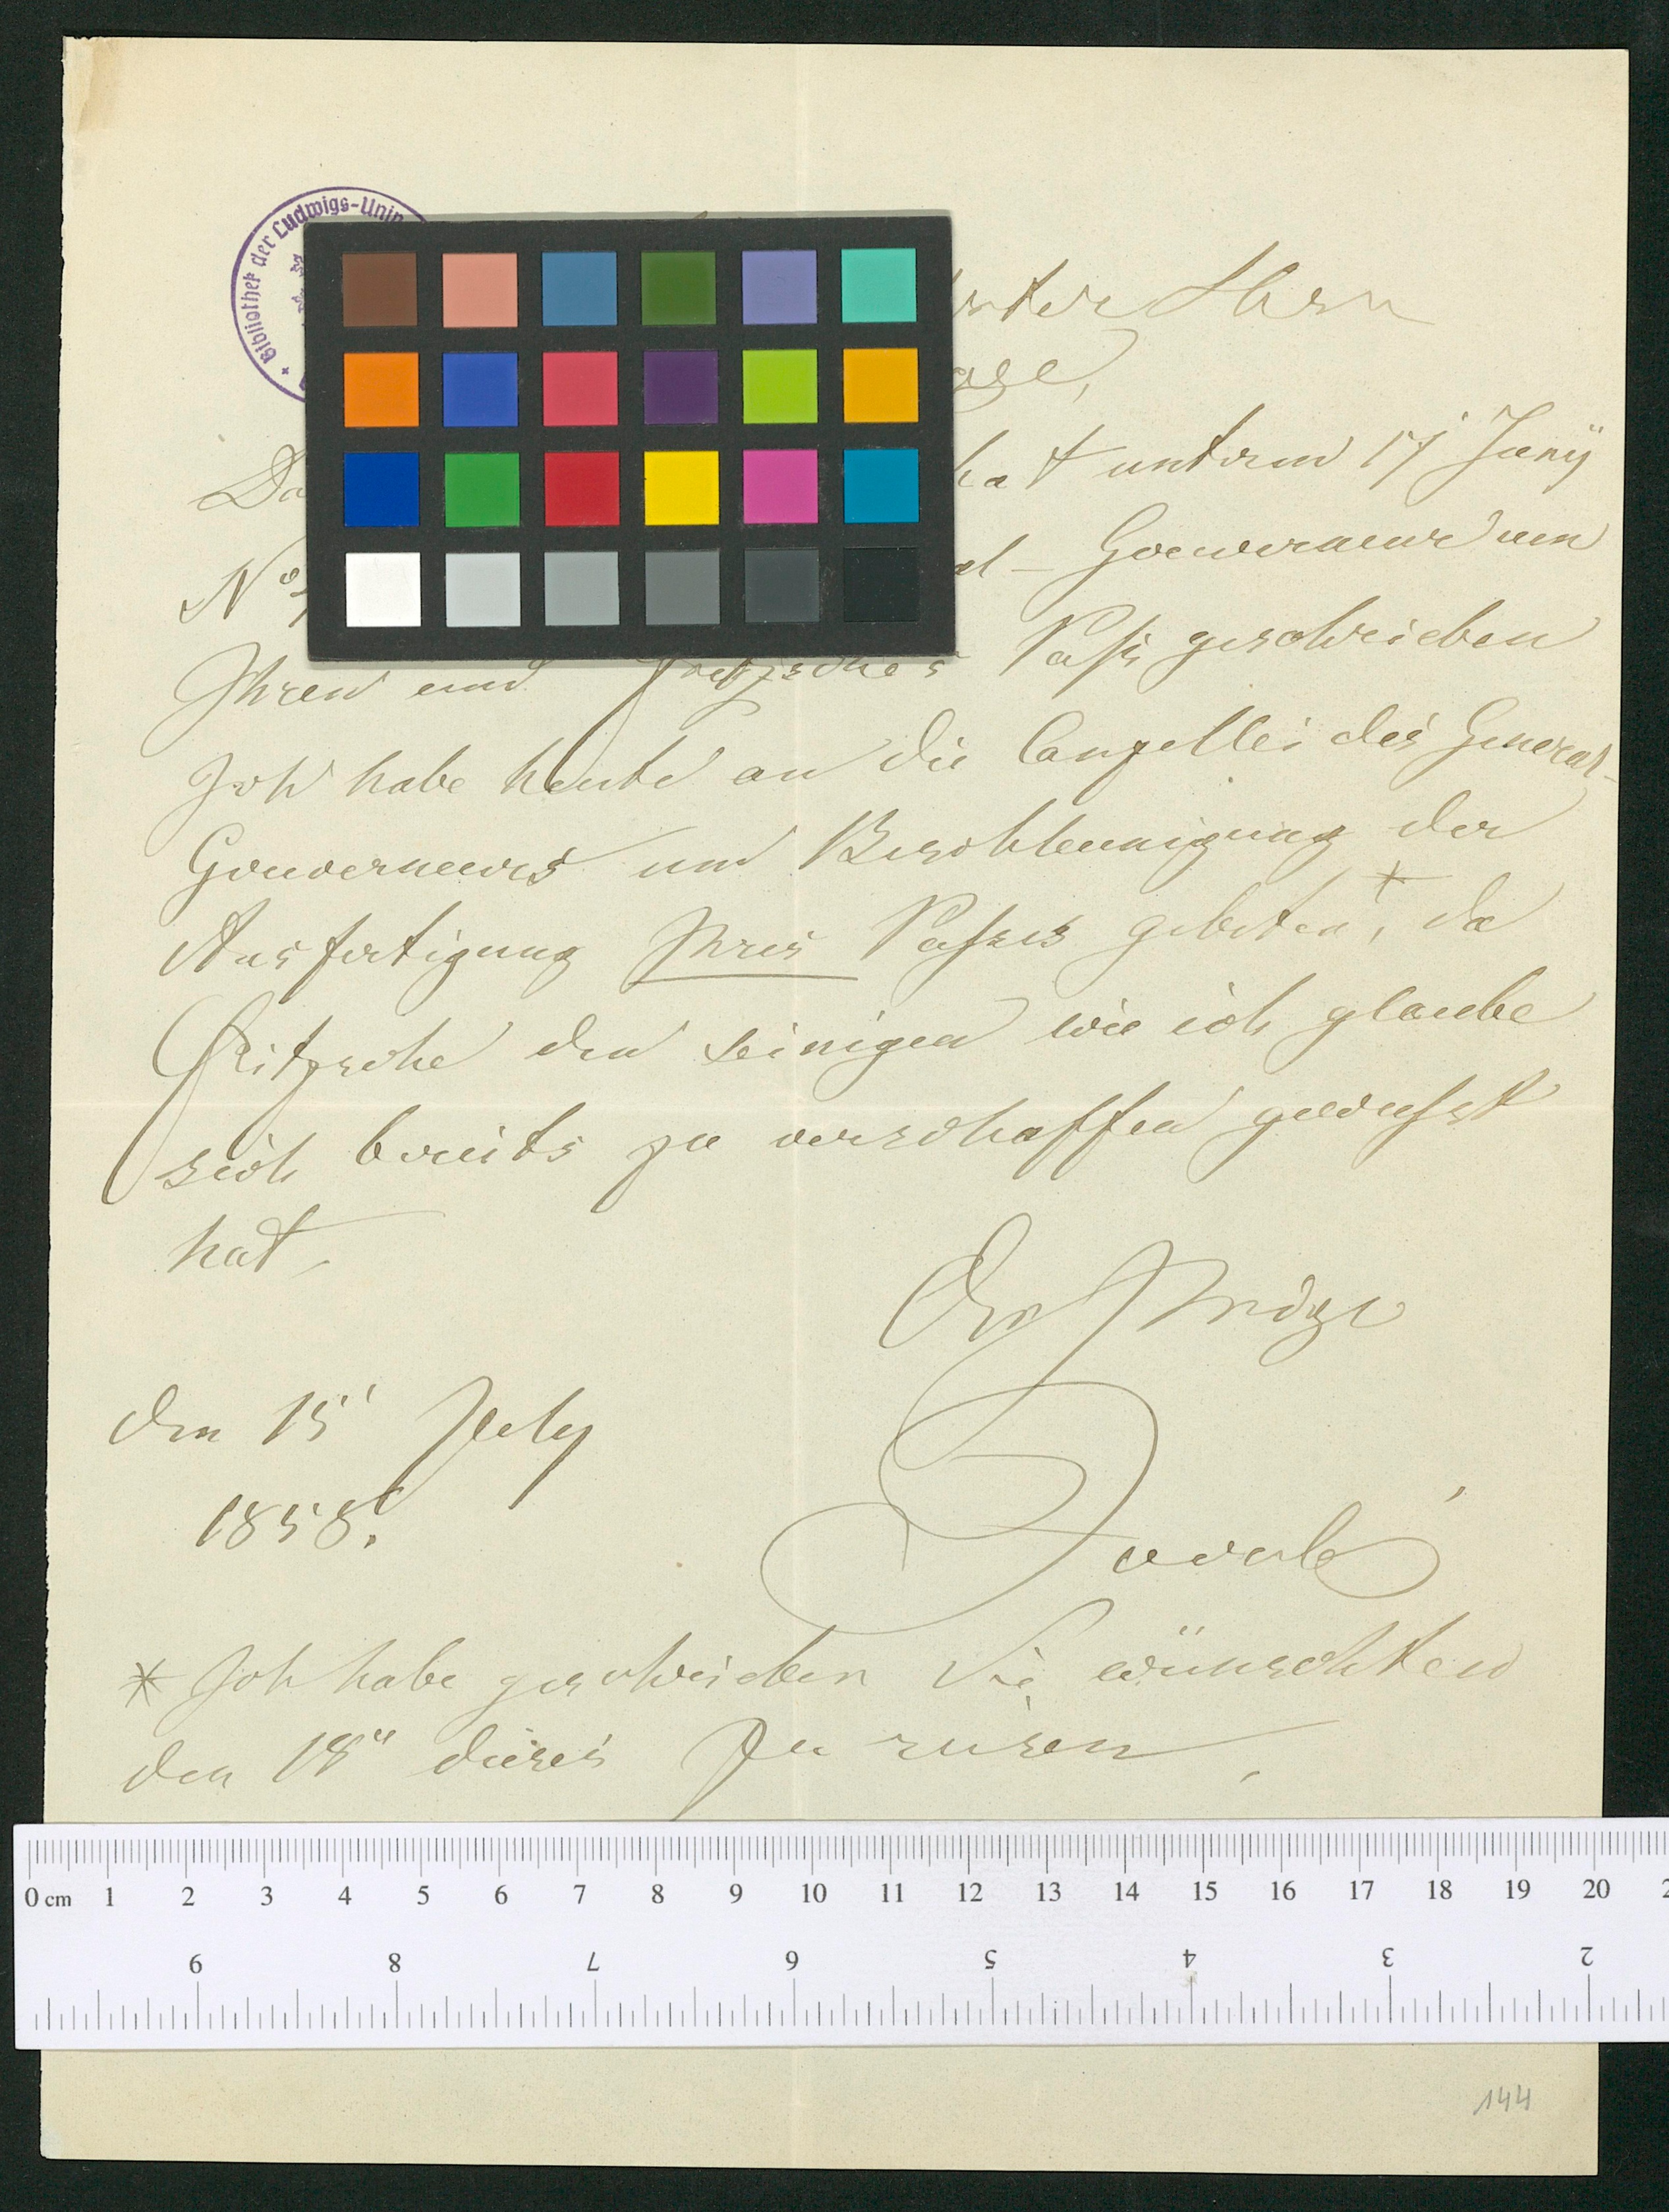 Bibliothek der Ludwigs-Univ
Herrn
hat unterm 17' Juny
No
Gouverneur um
Ihren und Fritzsches Paß geschrieben
Ich habe heute an die Canzellei des General-
Gouverneurs um Beschleunigung der
Ausfertigung Ihres Passes gebeten*, da
Fritzsche den seinigen wie ich glaube
sich bereits zu verschaffen gewusst
hat.
Der Ihrige
den 15' July
1858.
* Ich habe geschrieben Sie wünschten
den 18" dieses zu reisen.
0 cm 1 2 3 4 5 6 7 8 9 10 11 12 13 14 15 16 17 18 19 20
9 8 7 6 5 4 3 2
144